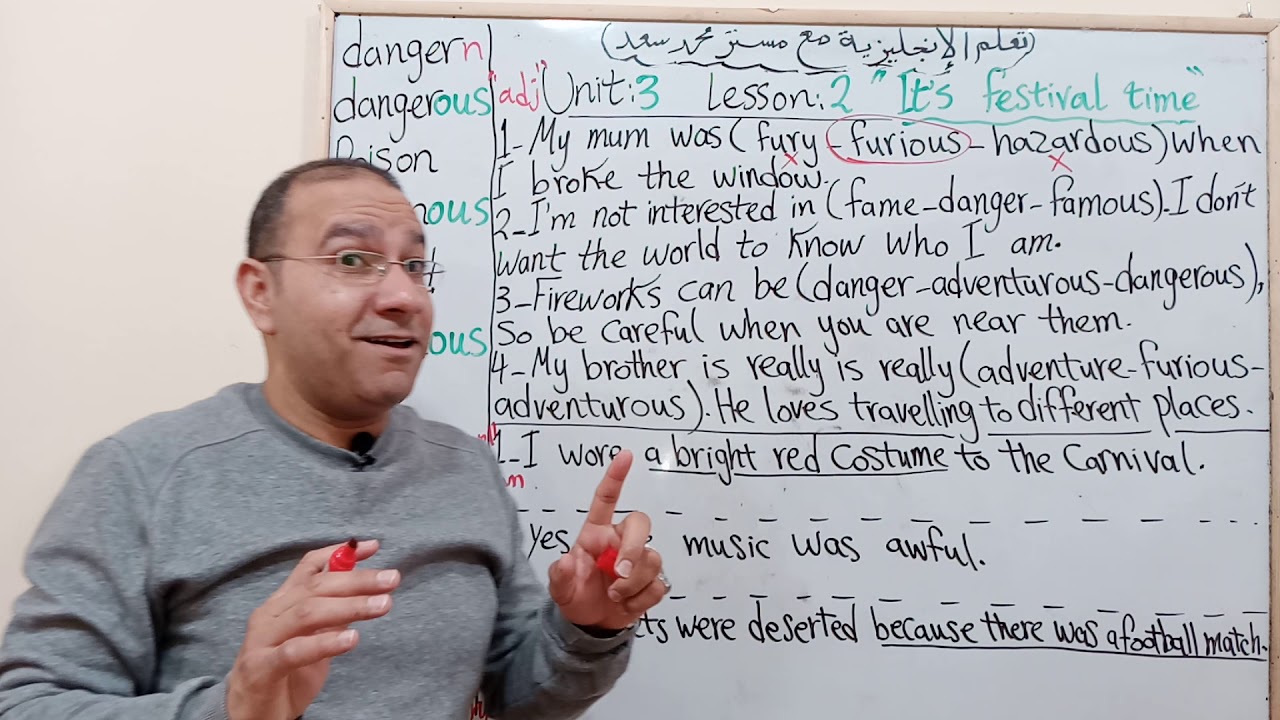 (تعلم الإنجليزية مع مستر محمد سعد)
danger n
dangerous "adj"
Poison
ous
ous
Unit:3 Lesson:2 "It's festival time"
1-My mum was (fury-furious-hazardous) when
I broke the window.
2-I'm not interested in (fame-danger-famous). I don't
want the world to know who I am.
3-Fireworks can be (danger-adventurous-dangerous),
So be careful when you are near them.
4-My brother is really is really (adventure-furious-
adventurous). He loves travelling to different places.
1-I wore a bright red costume to the Carnival.
yes music was awful.
were deserted because there was a football match.